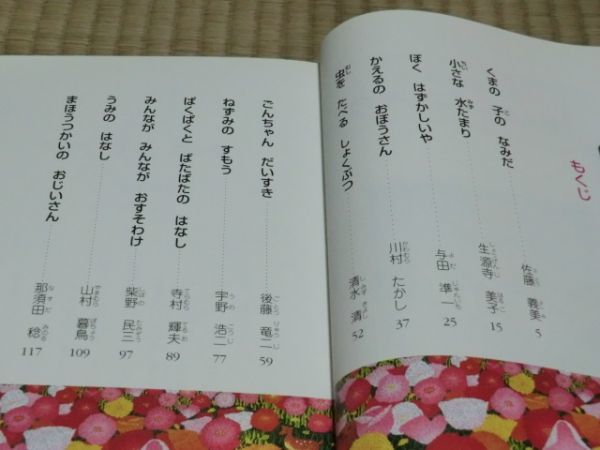 もくじ
くまの 子の なみだ 佐藤 義美 5
小さな 水たまり 生源寺 美子 15
ぼく はずかしいや 与田 準一 25
かえるの おぼうさん 川村 たかし 37
虫を たべる しょくぶつ 清水 清 52
ごんちゃん だいすき 後藤 竜二 59
ねずみの すもう 宇野 浩二 77
ぱくぱくと ぱたぱたの はなし 寺村 輝夫 89
みんなが みんなが おすそわけ 柴野 民三 97
うみの はなし 山村 暮鳥 109
まほうつかいの おじいさん 那須田 稔 117